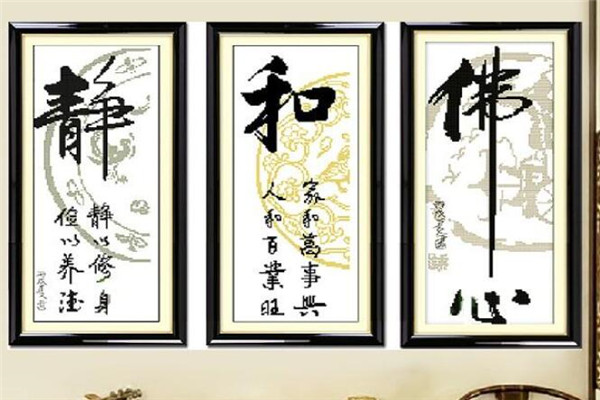 静
静以修身
俭以养德
和
家和万事兴
人和百業旺
佛
心